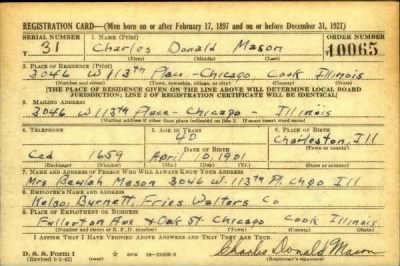 REGISTRATION CARD—(Men born on or after February 17, 1897 and on or before December 31, 1921)
SERIAL NUMBER 1. NAME (Print) ORDER NUMBER
31 Charles Donald Mason 10065
(First) (Middle) (Last)
2. PLACE OF RESIDENCE (Print)
3046 W 113th Place - Chicago, Cook Illinois
(Number and street) (Town, township, village, or city) (County) (State)
[THE PLACE OF RESIDENCE GIVEN ON THE LINE ABOVE WILL DETERMINE LOCAL BOARD
JURISDICTION; LINE 2 OF REGISTRATION CERTIFICATE WILL BE IDENTICAL]
3. MAILING ADDRESS
3046 W 113th Place - Chicago Illinois
[Mailing address if other than place indicated on line 2. If same insert word same]
4. TELEPHONE 5. AGE IN YEARS 6. PLACE OF BIRTH
40 Charleston,
DATE OF BIRTH
Ced 1659 April 10, 1901 Ill
(Exchange) (Number) (Mo.) (Day) (Yr.) (State or country)
7. NAME AND ADDRESS OF PERSON WHO WILL ALWAYS KNOW YOUR ADDRESS
Mrs Beulah Mason 3046 W. 113th Pl. Chgo Ill
8. EMPLOYER'S NAME AND ADDRESS
Kelso, Burnett, Fries Walters Co
9. PLACE OF EMPLOYMENT OR BUSINESS
Fullerton Ave & Oak St. Chicago Cook Illinois
(Number and street or R. F. D. number) (Town) (County) (State)
I AFFIRM THAT I HAVE VERIFIED ABOVE ANSWERS AND THAT THEY ARE TRUE.
D. S. S. Form 1
(Revised 1-1-42) Charles Donald Mason